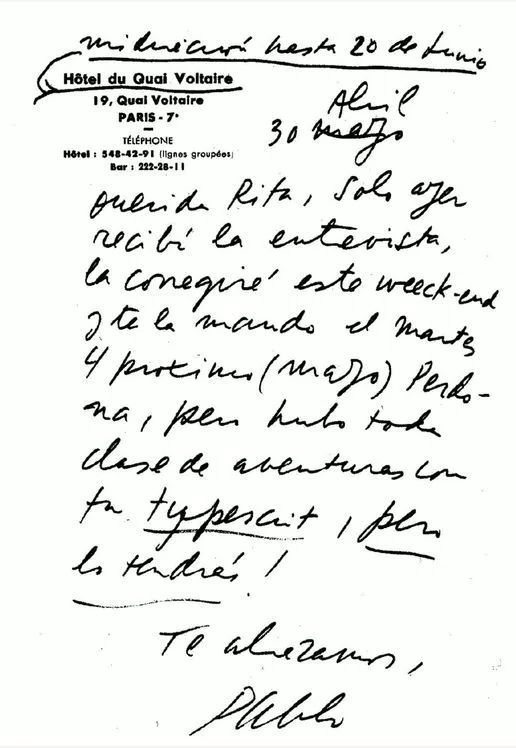 mi dirección hasta 20 de Junio
Hôtel du Quai Voltaire
19, Quai Voltaire
PARIS - 7ᵉ
TÉLÉPHONE
Hôtel : 548-42-91 (lignes groupées)
Bar : 222-28-11
Abril
30 marzo
Querida Rita, solo ayer
recibí la entrevista,
la corregiré este weeck-end
y te la mando el martes
4 proximo (mayo) Perdo-
na, pero hubo toda
clase de aventuras con
tu typescrit, pero
lo tendrás!
Te abrazamos,
Pablo